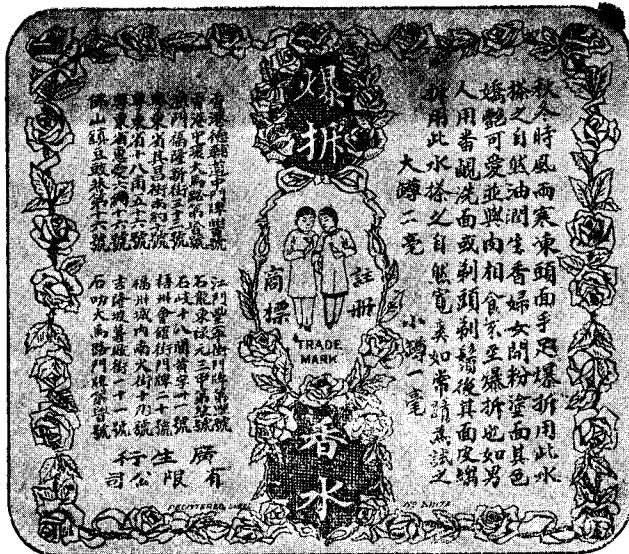 爆拆
香水
註冊
商標
TRADE
MARK
秋冬時風而寒凍頭面手足爆拆用此水
搽之自然油潤生香婦女開粉塗面其色
嬌艷可愛並與肉相食不至爆拆也如男
人用番梘洗面或剃頭剃鬚後其面皮縐
拆用此水搽之自然寬爽如常請為試之
大罇二毫 小罇一毫
香港德輔道中門牌號
香港中環大馬路第號
澳門福隆新街三十三號
粵東省昌街南約號
粵東省十八甫五十二號
粵東省惠愛六約十六號
佛山鎮豆豉巷第十六號
江門街門牌第號
石龍東元三甲第號
石岐十八間首字十一號
梧州會館街門牌二十號
福州城內南大街十九號
吉隆坡街一十一號
石叻大馬路門牌第號
生行
有限公司
REGISTERED